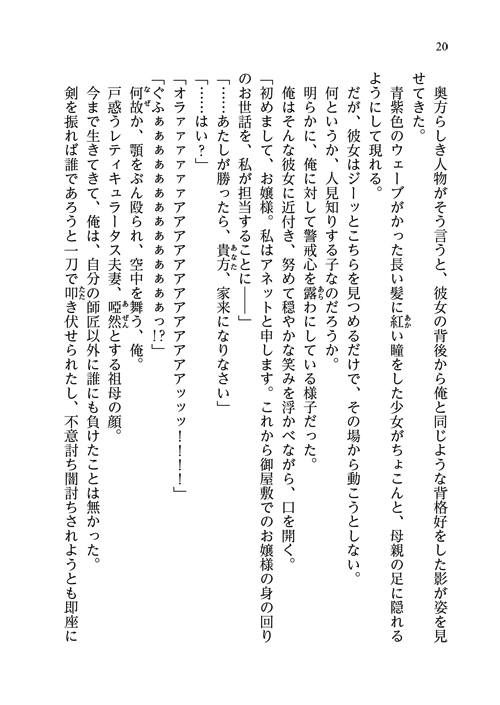 20
奥方らしき人物がそう言うと、彼女の背後から俺と同じような背格好をした影が姿を見
せてきた。
青紫色のウェーブがかった長い髪に紅い瞳をした少女がちょこんと、母親の足に隠れる
ようにして現れる。
だが、彼女はジーッとこちらを見つめるだけで、その場から動こうとしない。
何というか、人見知りする子なのだろうか。
明らかに、俺に対して警戒心を露わにしている様子だった。
俺はそんな彼女に近付き、努めて穏やかな笑みを浮かべながら、口を開く。
「初めまして、お嬢様。私はアネットと申します。これから御屋敷でのお嬢様の身の回り
のお世話を、私が担当することに――」
「……あたしが勝ったら、貴方、家来になりなさい」
「……はい？」
「オラァァァァァァアアアアアアアアアアアアッッッ！！！！」
「ぐふぁぁぁぁぁぁぁぁぁぁぁぁぁぁぁぁっ！？」
何故か、顎をぶん殴られ、空中を舞う、俺。
戸惑うレティキュラータス夫妻、啞然とする祖母の顔。
今まで生きてきて、俺は、自分の師匠以外に誰にも負けたことは無かった。
剣を振れば誰であろうと一刀で叩き伏せられたし、不意討ち闇討ちされようとも即座に